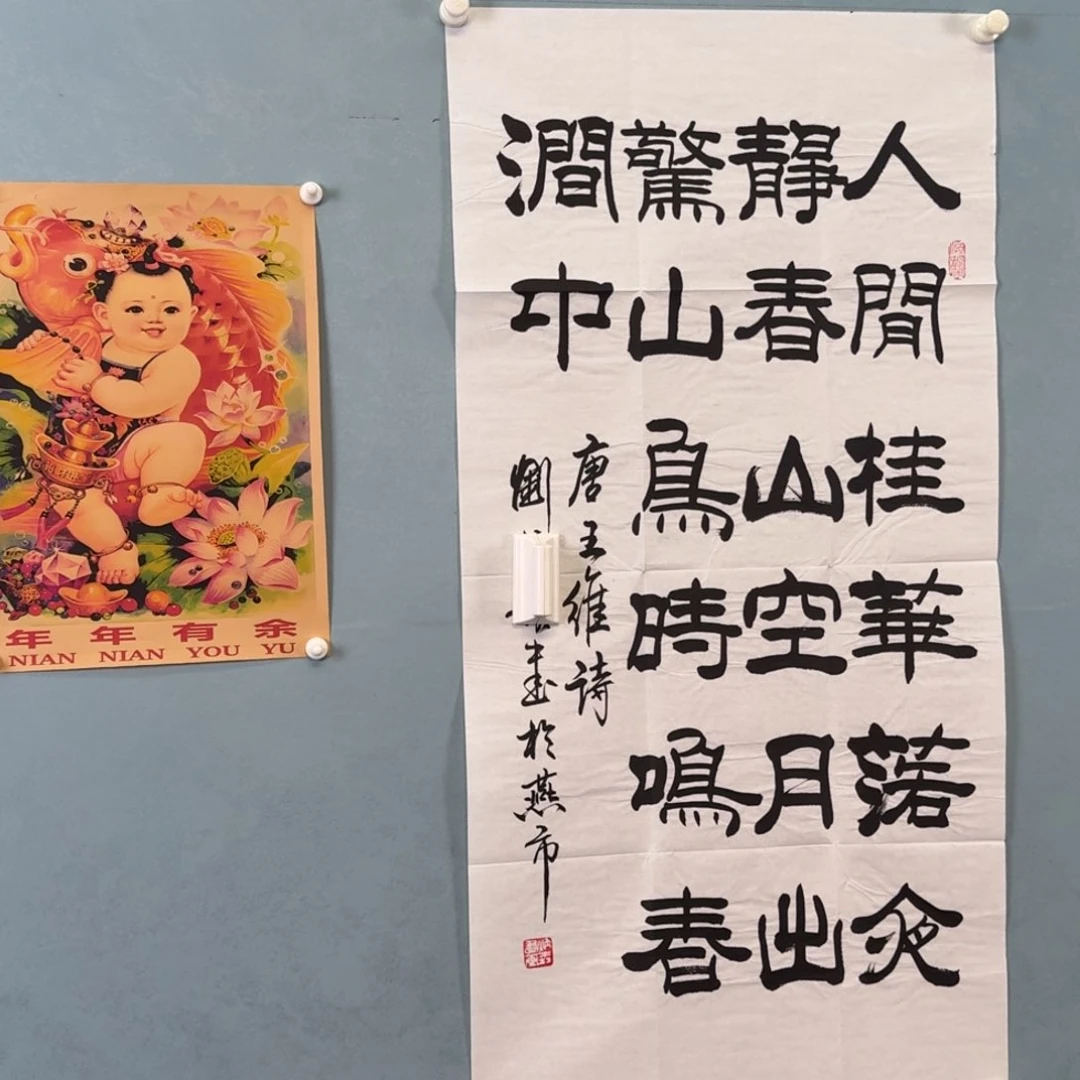 人閒桂華落夜
靜春山空月出
驚山鳥時鳴春
澗中
唐王維詩
劉
書於燕市
年年有余
NIAN NIAN YOU YU